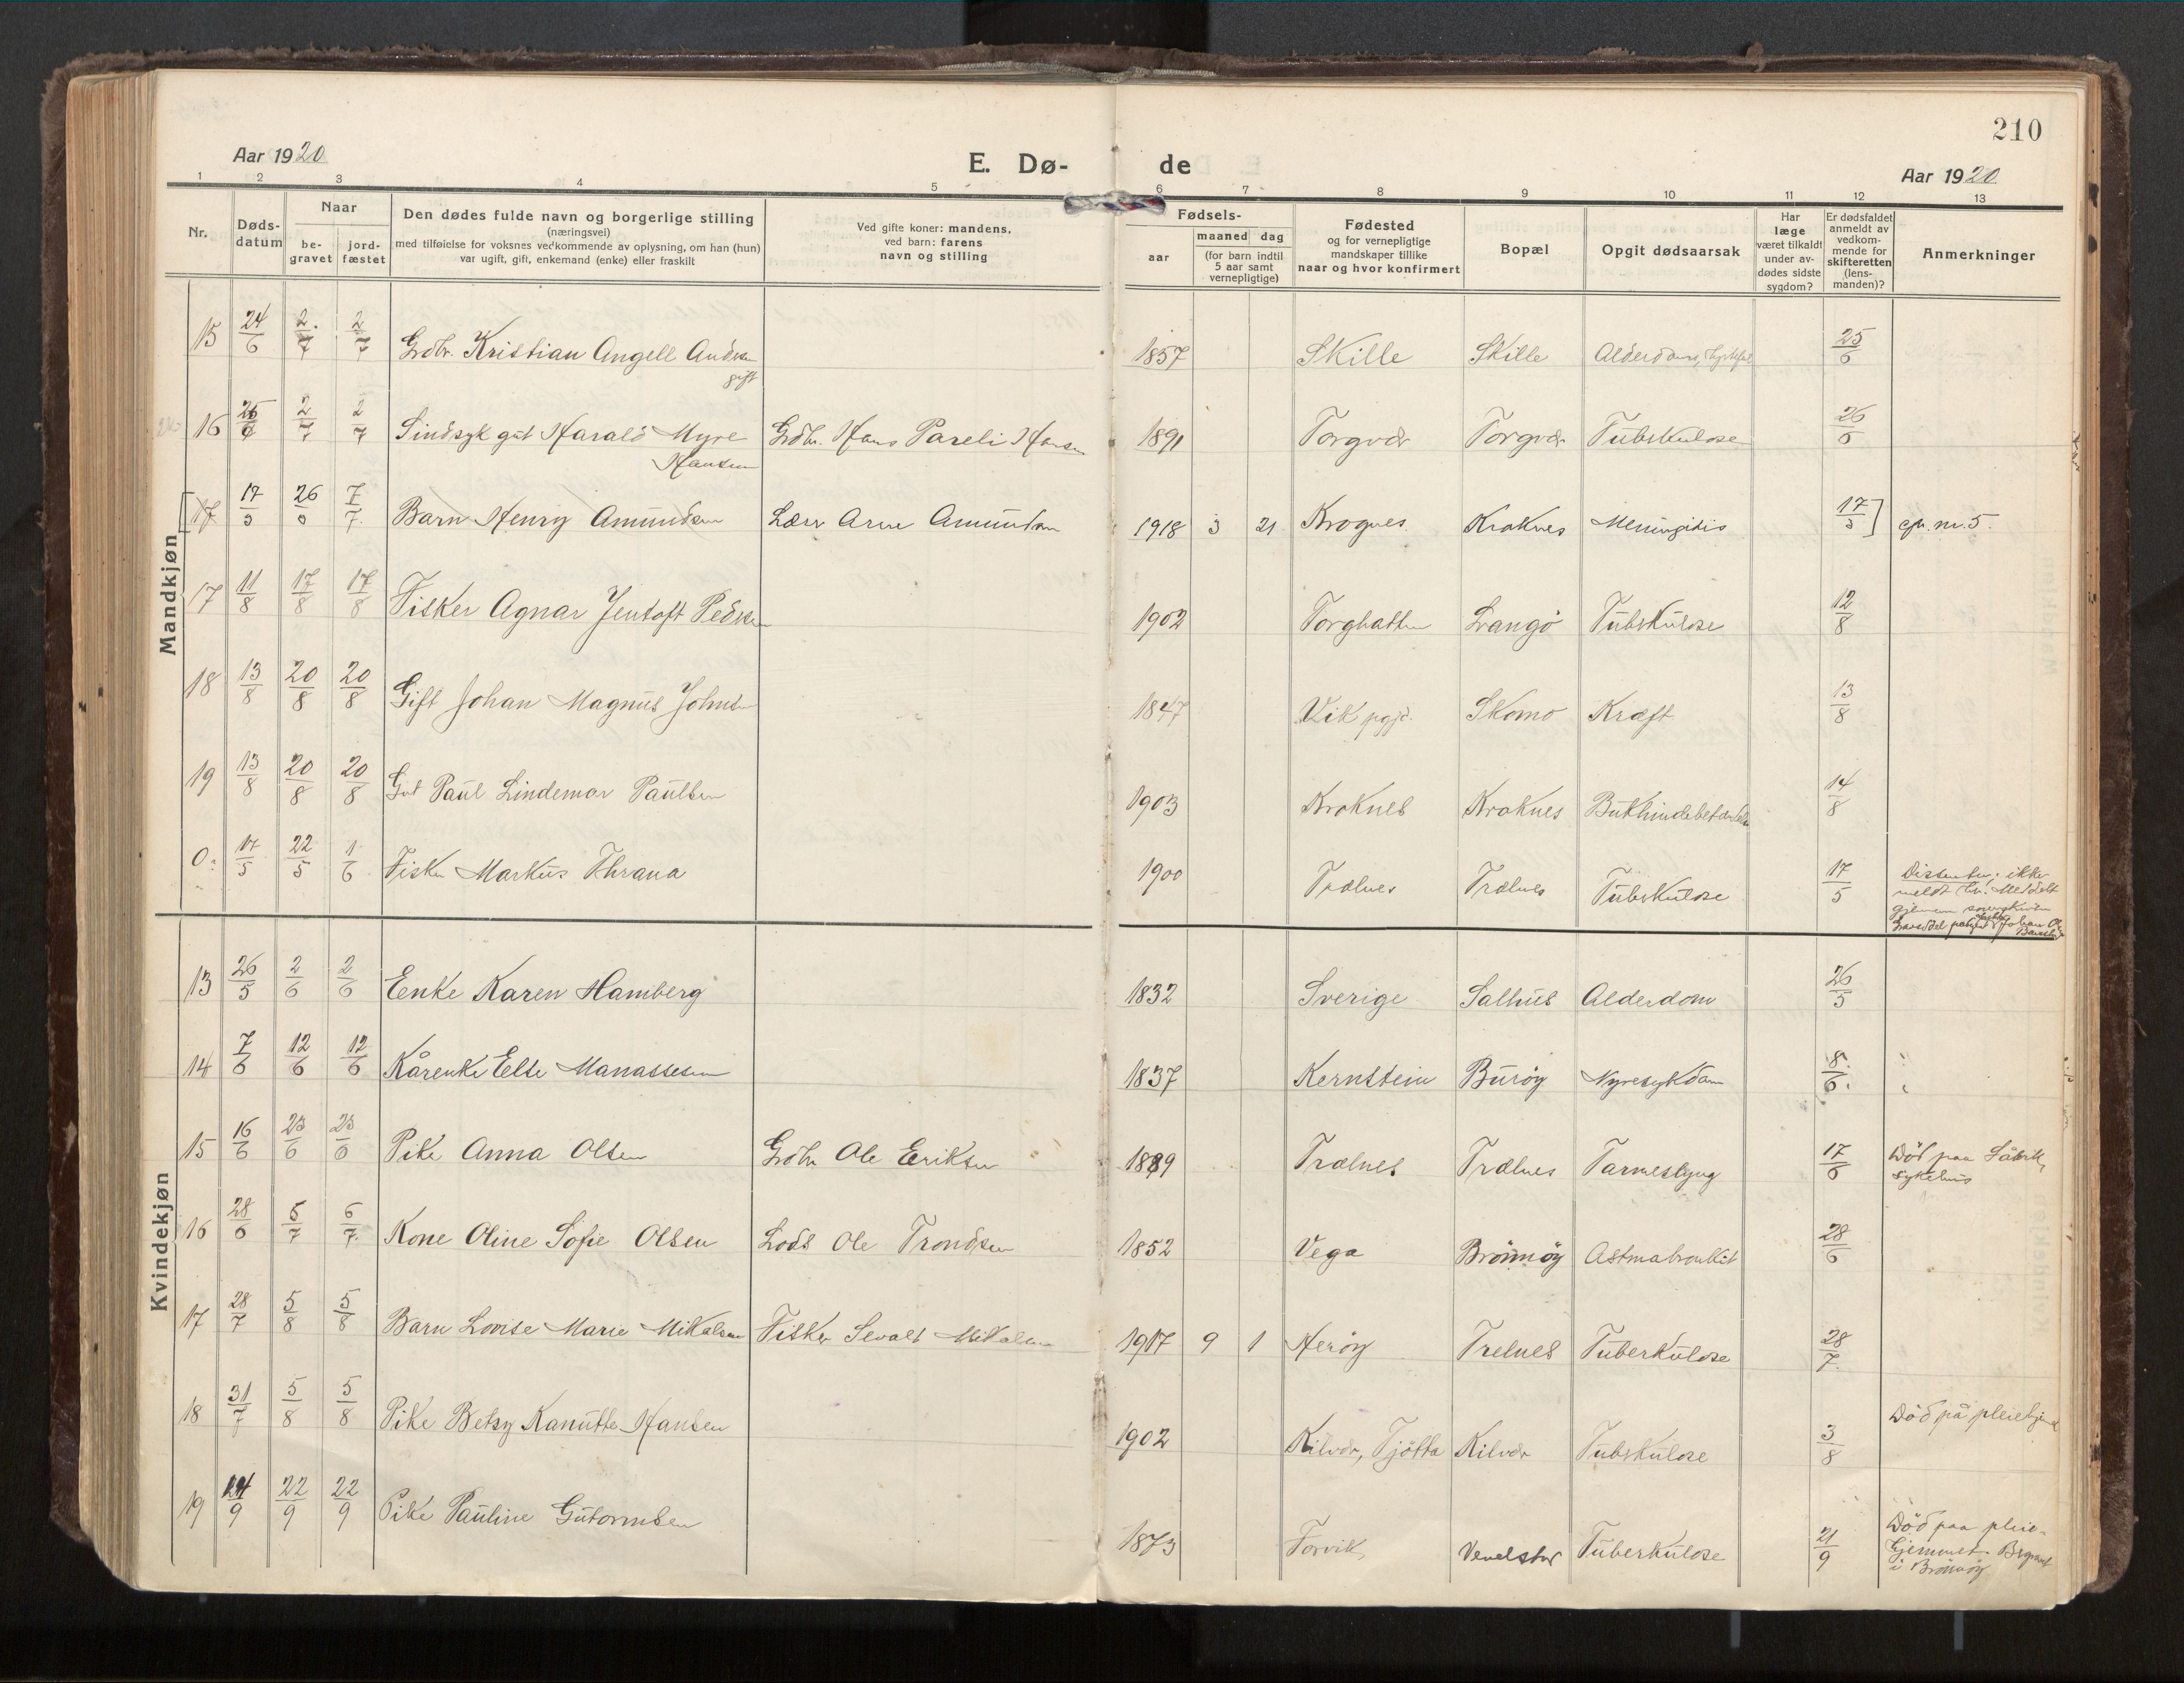 210
Aar 1920
E. Dø-
de
Aar 1920
1 2 3 4 5 6 7 8 9 10 11 12 13
Nr.
Døds-
datum
Naar
be-
gravet
jord-
fæstet
Den dødes fulde navn og borgerlige stilling
(næringsvei)
med tilføielse for voksnes vedkommende av oplysning, om han (hun)
var ugift, gift, enkemand (enke) eller fraskilt
Ved gifte koner: mandens,
ved barn: farens
navn og stilling
Fødsels-
aar
maaned dag
(for barn indtil
5 aar samt
vernepligtige)
Fødested
og for vernepligtige
mandskaper tillike
naar og hvor konfirmert
Bopæl
Opgit dødsaarsak
Har
læge
været tilkaldt
under av-
dødes sidste
sygdom?
Er dødsfaldet
anmeldt av
vedkom-
mende for
skifteretten
(lens-
manden)?
Anmerkninger
Mandkjøn
15 24/6 2/7 2/7 Grdbr. Kristian Angell Andrsn 1857 Skille Skille Alderdoms, 25/6
gift
16 26/6 2/7 2/7 Sindsyk gut Harald Myre Grdbr. Hans Pareli Hansen 1891 Torgvær Torgvær Tuberkulose 26/6
Hansen
17 17/3 26/ 7/7 Barn Henry Amundsen Lærer Arne Amundsen 1918 3 21 Krognes Kroknes Meningitis 17/3 cfr. nr. 5.
17 11/8 17/8 17/8 Fisker Agnar Jentoft Pedersen 1902 Torghatten Langö Tuberkulose 12/8
18 13/8 20/8 20/8 Gift Johan Magnus Johnsen 1847 Vik pgjd. Skomo Kræft 13/8
19 13/8 20/8 20/8 Gut Paul Lindemar Paulsen 1903 Kroknes Kroknes Bukhindebetændelse 14/8
0: 17/5 22/5 1/6 Fisker Markus Thrana 1900 Trælnes Trælnes Tuberkulose 17/5 Dissenter; ikke
meldt Meddelt
gjennem
Johan
Kvindekjøn
13 26/5 2/6 2/6 Enke Karen Hamberg 1832 Sverige Salhus Alderdom 26/5
14 7/6 12/6 12/6 Kårenke Else Manassesen 1837 Kernstein Buröy Nyresykdom 8/6
15 16/6 23/6 23/6 Pike Anna Olsen Grdbr Ole Eriksen 1889 Trælnes Trælnes Tarmeslyng 17/6 Död paa
sykehus
16 28/6 5/7 6/7 Kone Oline Sofie Olsen Lods Ole Trondsen 1852 Vega Brönnöy Astmabronkit 28/6
17 28/7 5/8 5/8 Barn Lovise Marie Mikalsen Fisker Sevalt Mikalsen 1917 9 1 Heröy Trelnes Tuberkulose 28/7
18 31/7 5/8 5/8 Pike Betzy Kanutte Hansen 1902 Kilvær, Tjötta Kilvær Tuberkulose 3/8 Död på pleiehjem
19 14/9 22/9 22/9 Pike Pauline Gutormsen 1873 Forvik Vevelstad Tuberkulose 21/9 Död paa pleie-
hjemmet. Begravet
i Brönnöy